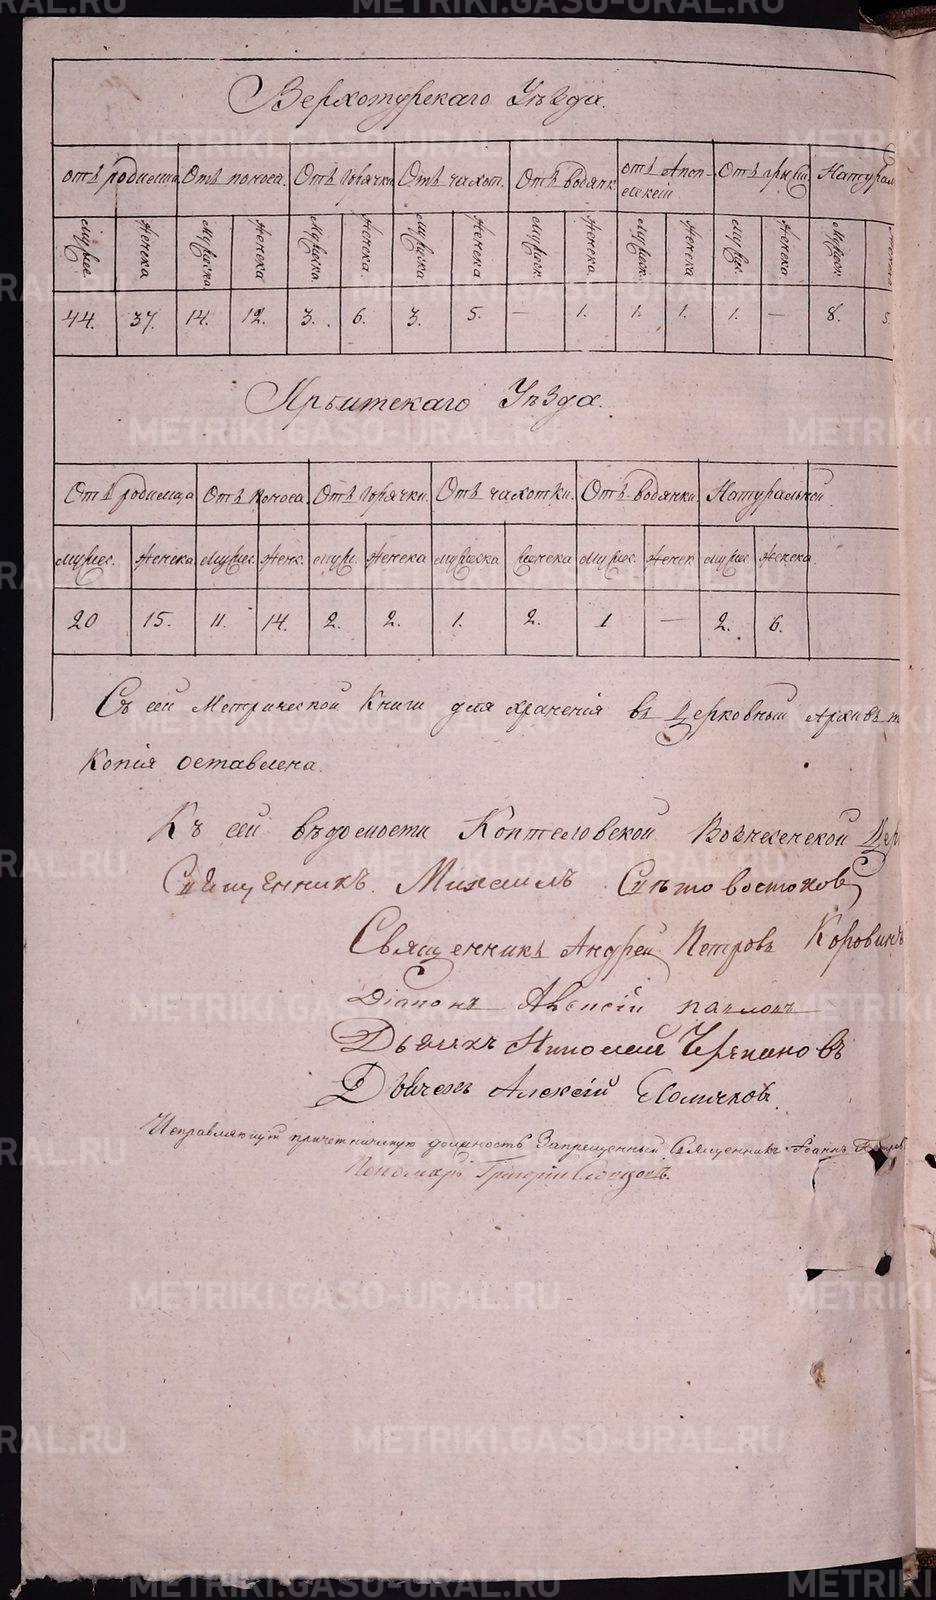 Верхотурскаго Уѣзда.
отъ родимца Отъ поноса. Отъ горячки Отъ чахот. Отъ водянк. отъ Апоплексіи Отъ грыжи Натурал
Мужес. Женска Мужеска Женска. Мужеска. Женска. Мужеска. Женска Мужеск. Женска. Мужеск. Женска Мужес. Женска Мужеск.
44. 37. 14. 12. 3. 6. 3. 5. — 1. 1. 1. 1. — 8. 5
Ирбитскаго Уѣзда.
Отъ родимца Отъ поноса Отъ горячки. Отъ чахотки. Отъ водянки. Натуральной
мужес. Женска мужес. Женс. муж. Женска мужеска Женска мужес. Женск мужес. Женска.
20 15. 11. 14. 2. 2. 1. 2. 1 — 2. 6.
Съ сей Метрической Книги для храненія въ Церковный Архивъ
Копія оставлена.
Къ сей вѣдомости Коптеловской Вознесенской Цер
Священникъ Михаилъ Свѣтовостоковъ
Священникъ Андрей Петровъ Коровинъ
Діаконъ Алексій Павловъ
Дьячекъ Николай Черепановъ
Дьячекъ Алексій Хомяковъ.
Исправляющій причетническую должность Запрещенный Священникъ Іоаннъ
Пономарь Григорій Словцовъ.
METRIKI.GASO-URAL.RU